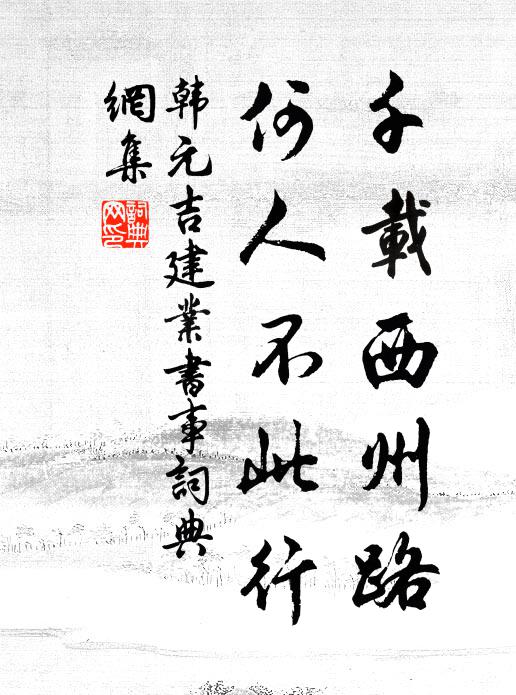 千載西州路
何人不此行
韩元吉建業書事詞典
網集
詞典網印